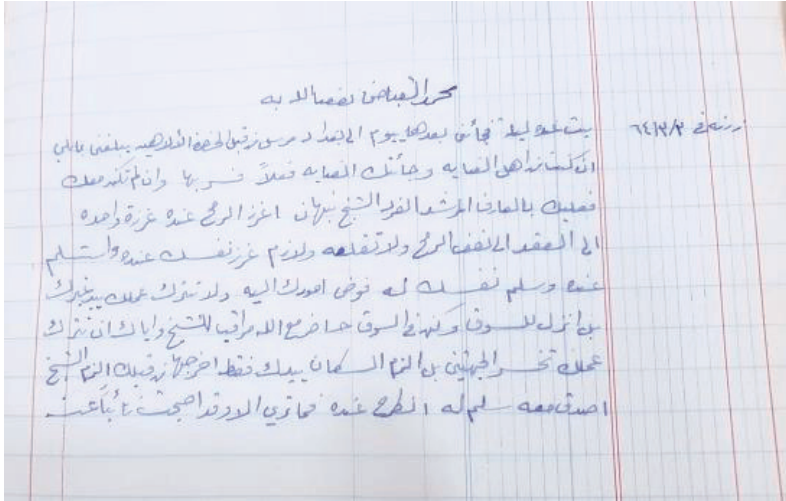 محمد الشعباني نفعنا الله به
زرته في ٦٤/٣/٣
بيت عنده ليلة فجأني بعدها بيوم الى بعداد مرسل من قبل الحضرة الالهيه يبلغني مايلي
ان كنت من اهل العنايه وجأتك العنايه فعلاً فسر بها وان لم تكن معك
فعليك بالعارف المرشد الفرد الشيخ نبهان اغرز الرمح عنده غرزة واحده
الى العقد الى نصف الرمح ولا تقلعه ولازم غرز نفسك عنده واستلم
عنده وسلم نفسك له فوض امورك اليه ولا تترك عملك بيد غيرك
بل انزل للسوق وكن في السوق حاضر مع الله مراقبا للشيخ واياك ان تترك
عملك تخسر الجهتين بل الزم السكان بيدك فقط اخرجها من قلبك الزم الشيخ
اصدق معه سلم له انطرح عنده فما تري الا وقد اصبحت نائبا عنه